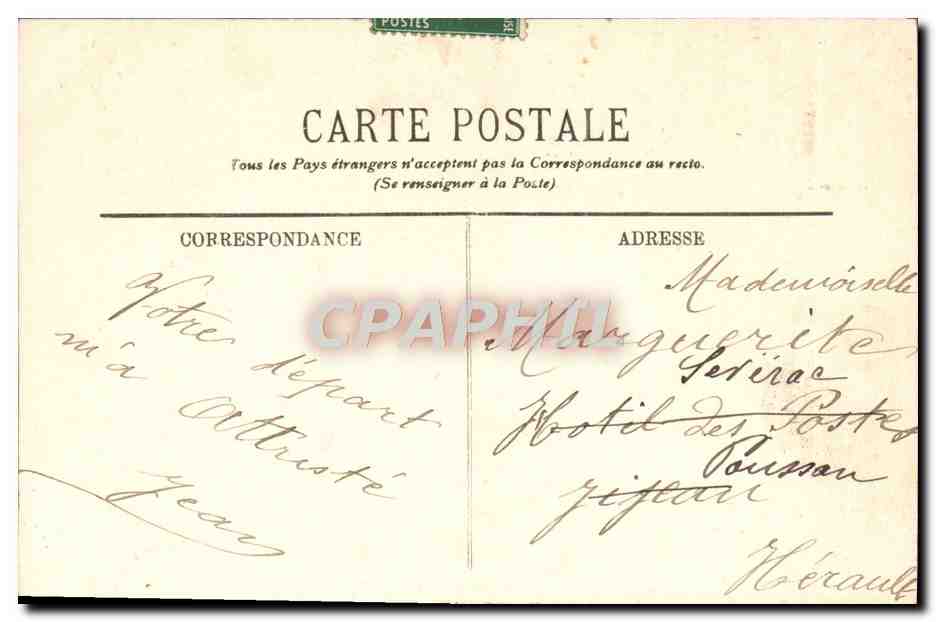 POSTES
CARTE POSTALE
Tous les Pays étrangers n'acceptent pas la Correspondance au recto.
(Se renseigner à la Poste)
CORRESPONDANCE
Votre départ
m'a attristé
Jean
ADRESSE
Mademoiselle
Marguerite
Sévérac
Hotil des Postes
Poussan
Gijean
Hérault
CPAPHIL